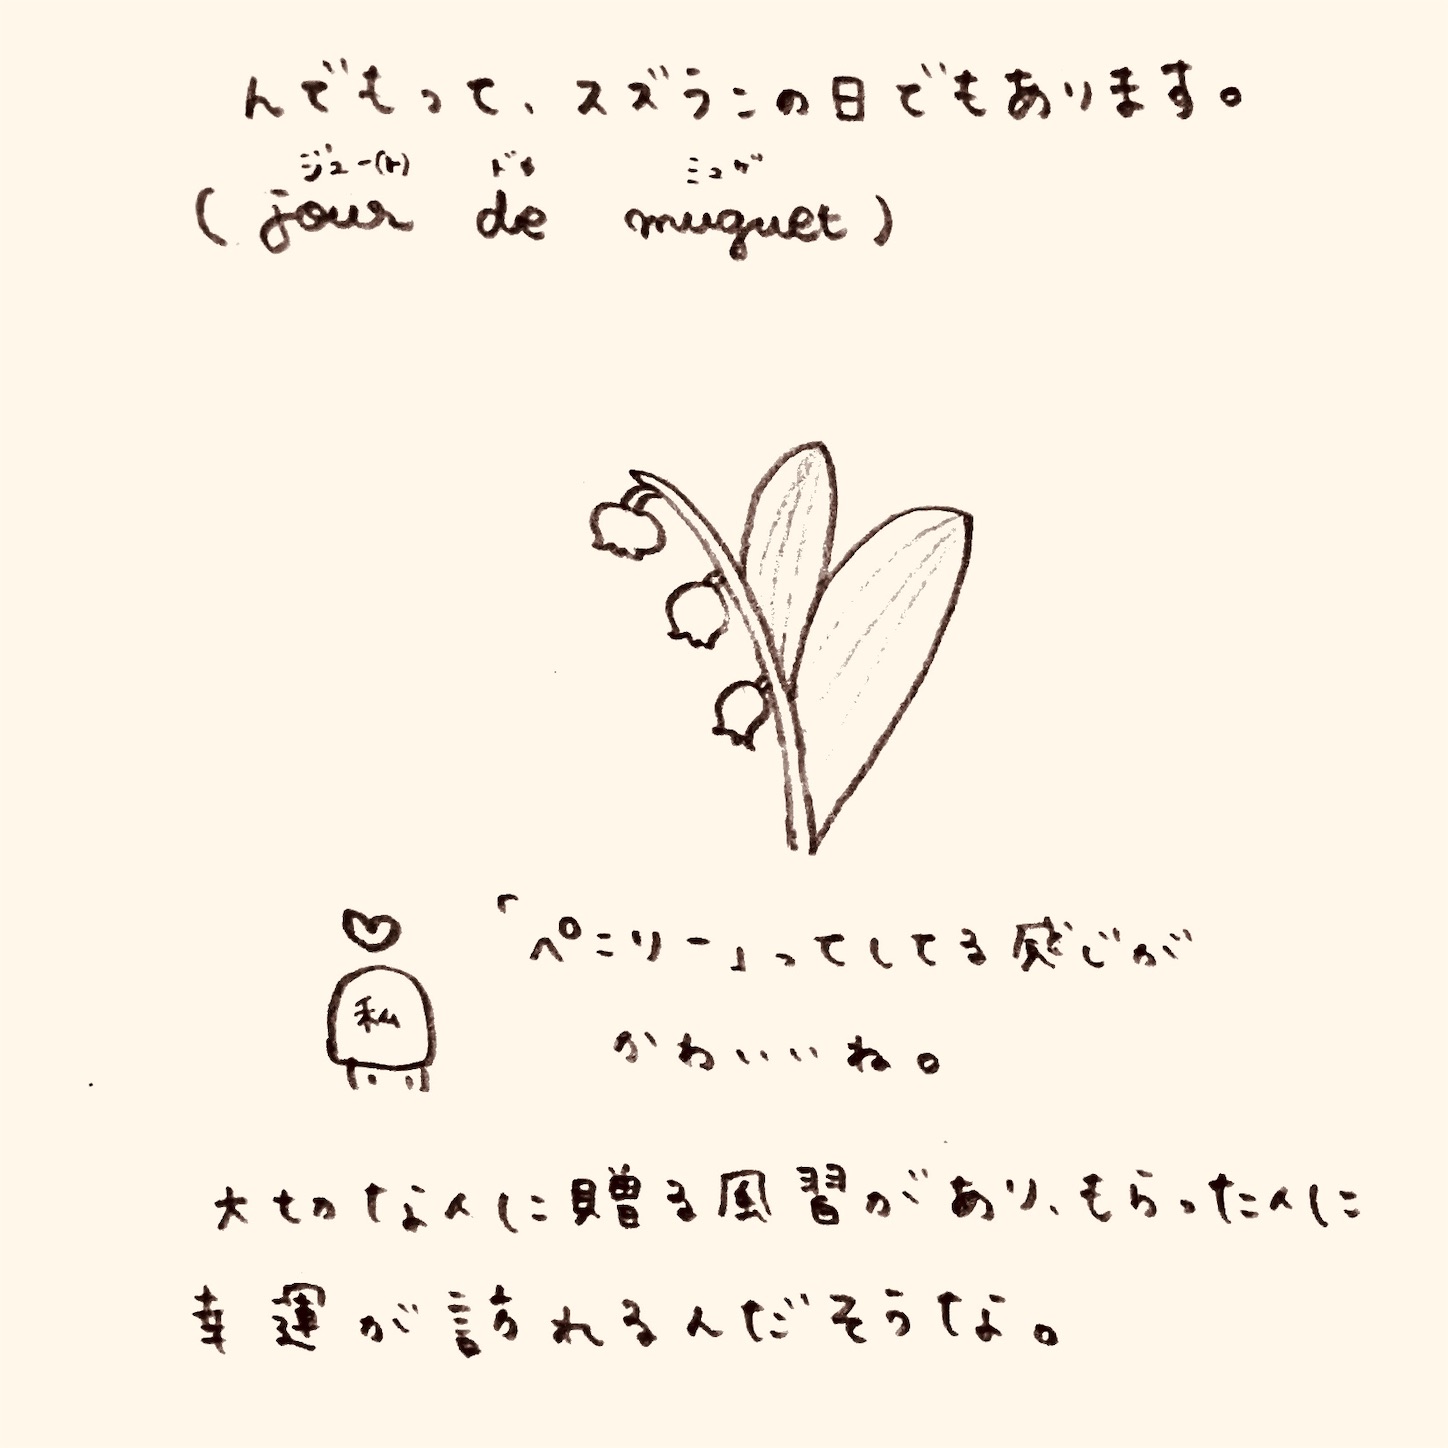 んでもって、スズランの日でもあります。
ジュー(ト) ドゥ ミュゲ
(jour de muguet)
「ペニリー」ってしてる感じが
私
かわいいね。
大切な人に贈る風習があり、もらった人に
幸運が訪れるんだそうな。